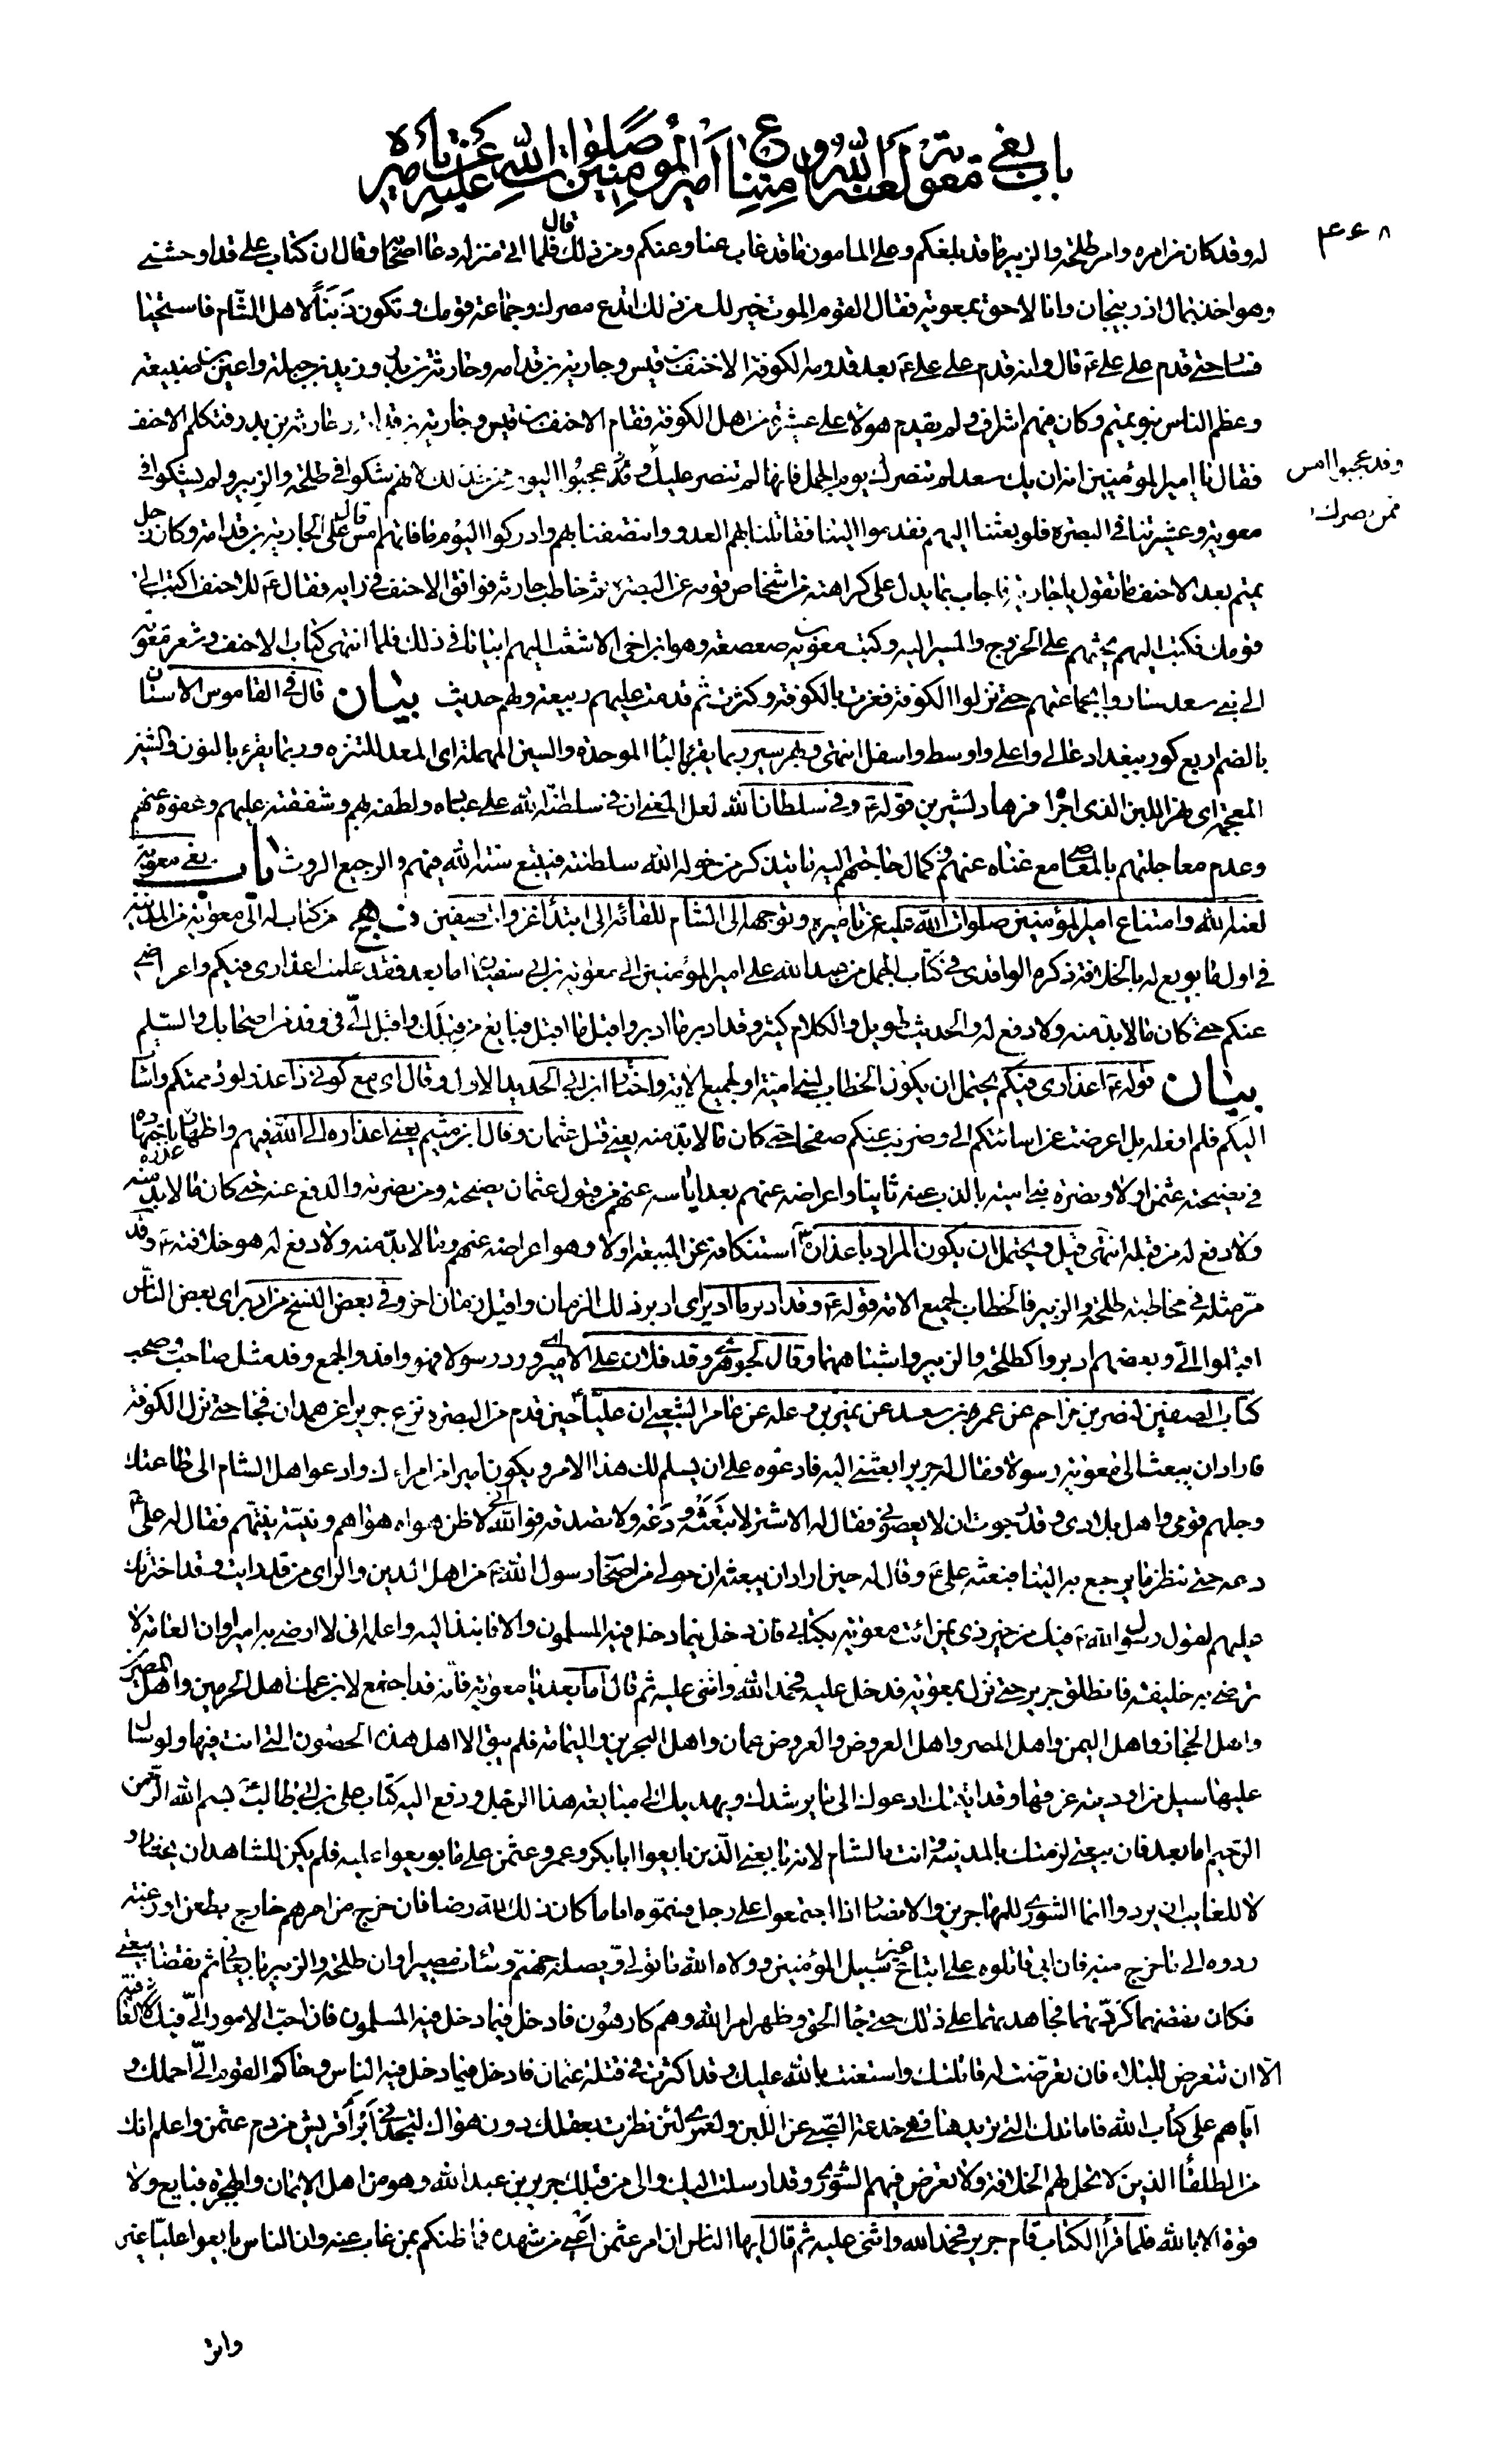 باب بغي معوية لعنه الله و امتناع امير المؤمنين صلوات الله عليه عن تأميره
٤٤٨
له وقد كان من امره وامر طلحة والزبير ما قد بلغكم وعلى المامون ما قد غاب عنا وعنكم ومن ذلك قال فلما اتى منزله دعا اصحابه وقال ان كتاب على قد اوحشنى
وهو اخذ بمال اذربيجان وانا لاحق بمعوية فقال القوم الموت خير لك من ذلك اتدع مصرك وجماعة قومك وتكون ذَنَباً لاهل الشام فاستحيا
فسار حتى قدم على على ع قال وانه قدم على على ع بعد قدومه الكوفة الاحنف بن قيس وجارية بن قدامه وحارثة بن بدر وزيد بن جبلة واعين بن ضبيعة
وعظم الناس بنو تميم وكان فيهم اشراف ولم يقدم هؤلاء على عشيرة من اهل الكوفة فقام الاحنف بن قيس وجارية بن قدامة وحارثة بن بدر فتكلم الاحنف
فقال يا امير المؤمنين انه ان يك سعد لم تنصرك يوم الجمل فانها لم تنصر عليك وقد عجبوا اليوم ممن خذلك لانهم شكوا فى طلحة والزبير ولم يشكوا فى
وقد عجبوا امس
ممن نصرك
معوية وعشيرتنا فى البصرة فلو بعثنا اليهم فقدموا الينا فقاتلنا بهم العدو وانتصفنا بهم وادركوا اليوم ما فاتهم امس قال على لجارية بن قدامة وكان رجل
تميم بعد الاحنف ما تقول يا جارية فاجاب بما يدل على كراهته من اشخاص قومه عن البصرة ثم خاطب حارثه فوافق الاحنف فى رايه فقال ع للاحنف اكتب الى
قومك فكتب اليهم يحثهم على الخروج والمسير اليه وكتب معوية بن صعصعة وهو ابن اخى الاشعث اليهم ابياتا فى ذلك فلما انتهى كتاب الاحنف وشعر معوية
الى بنى سعد ساروا بجماعتهم حتى نزلوا الكوفة فعزت بالكوفة وكثرت ثم قدمت عليهم ربيعة ولهم حديث بيان قال فى القاموس الاستان
بالضم اربع كور ببغداد عالى واعلى واوسط واسفل انتهى وبهرسير ربما يقرء بالباء الموحدة والسين المهملة اى المعد للتنزه وربما يقرء بالنون والشين
المعجمة اى نهر اللبن الذى اجراه فرهاد لشيرين قوله ع وفى سلطان الله لعل المعنى ان فى سلطنة الله على عباده ولطفه بهم وشفقته عليهم وعفوه عنهم
وعدم معاجلتهم بالمعاصى مع غناه عنهم وكمال حاجتهم اليه ما يتذكر من خوله الله سلطنة فيتبع سنة الله فيهم والرجيع الروث باب بغي معوية
لعنه الله وامتناع امير المؤمنين صلوات الله عليه عن تاميره وتوجهه الى الشام للقائه الى ابتدأ غزوات صفين نهج من كتاب له الى معوية من المدينة
فى اول ما بويع له بالخلافة ذكره الواقدى فى كتاب الجمل من عبد الله على امير المؤمنين الى معوية بن ابى سفيان اما بعد فقد علمت اعذارى فيكم واعراضى
عنكم حتى كان ما لا بد منه ولا دفع له والحديث طويل والكلام كثير وقد ادبر ما ادبر واقبل ما اقبل فبايع من قِبَلك واقبل الىّ فى وفد من اصحابك والسلم
بيان قوله ع اعذارى فيكم يحتمل ان يكون الخطاب لبنى امية او لجميع الامة واختار ابن ابى الحديد الاول وقال اى مع كونى ذا عذر لو ذممتكم واسأت
اليكم فلم افعله بل اعرضت عن اسائتكم الى وضربت عنكم صفحا حتى كان ما لا بد منه يعنى قتل عثمان وقال ابن ميثم يعنى اعذاره الى الله فيهم واظهار عذره باجتهاده
فى نصيحة عثمن اولا ونصرة بنى امية بالذب عنه ثانيا واعراضه عنهم بعد اياسه عنهم من قبول عثمان نصيحته ومن نصرته والدفع عنه حتى كان ما لا بد منه
ولا دفع له من قتله انتهى قيل ويحتمل ان يكون المراد باعذاره ع استنكافه عن البيعة اولا وهو اعراضه عنهم وما لا بد منه ولا دفع له هو خلافته ع وقد
مرّ مثله فى مخاطبة طلحة والزبير فالخطاب لجميع الامة قوله ع وقد ادبر ما ادبر اى ادبر ذلك الزمان واقبل زمان اخر وفى بعض النسخ من ادبر اى بعض الناس
اقبلوا الىّ وبعضهم ادبروا كطلحة والزبير واشباههما وقال الجوهرى وفد فلان على الامير اى ورد رسولا فهو وافد والجمع وفد مثل صاحب وصحب
كتاب الصفين لنصر بن مزاحم عن عمر بن سعد عن نمير بن وعله عن عامر الشعبى ان عليا ع حين قدم من البصرة نزع جريرا عن همدان فجاء حتى نزل الكوفة
فاراد ان يبعث الى معوية رسولا وقال له جرير ابعثنى اليه فادعوه على ان يسلم لك هذا الامر ويكون اميرا من امراءك وادعو اهل الشام الى طاعتك
وجلهم قومى واهل بلادى وقد رجوت ان لا يعصونى فقال له الاشتر لا تبعَثه ودَعه ولا تصدقه فوالله انى لاظن هواه هواهم ونيته نيتهم فقال له على ع
دعه حتى ننظر ما يرجع به الينا فبعثه على ع وقال له حين اراد ان يبعثه ان حولى من اصحاب رسول الله ص من اهل الدين والراى من قد رايت وقد اخترتك
عليهم لقول رسول الله ص فيك من خير ذى يمن ائت معوية بكتابى فان دخل فيما دخل فيه المسلمون والا فانبذ اليه واعلمه انى لا ارضى به اميرا وان العامة لا
ترضى به خليفة فانطلق جرير حتى نزل بمعوية فدخل عليه فحمد الله واثنى عليه ثم قال اما بعد يا معوية فانه قد اجتمع لابن عمك اهل الحرمين واهل المصرين
واهل الحجاز واهل اليمن واهل المصر واهل العروض والعروض عمان واهل البحرين واليمامة فلم يبق الا اهل هذه الحصون التى انت فيها ولو سال
عليها سيل من اوديته غرقها وقد اتيتك ادعوك الى ما يرشدك ويهديك الى مبايعة هذا الرجل ودفع اليه كتاب على بن ابى طالب بسم الله الرحمن
الرحيم اما بعد فان بيعتى لزمتك بالمدينة وانت بالشام لانه بايعنى الذين بايعوا ابابكر وعمر وعثمن على ما بويعوا عليه فلم يكن للشاهد ان يختار
ولا للغايب ان يرد وانما الشورى للمهاجرين والانصار اذا اجتمعوا على رجل فسموه اماما كان ذلك لله رضا فان خرج من امرهم خارج بطعن او رغبة
ردوه الى ما خرج منه فان ابى قاتلوه على اتباع غير سبيل المؤمنين وولاه الله ما تولىّ ويصله جهنم وسائت مصيرا وان طلحة والزبير بايعانى ثم نقضا بيعتى
فكان نقضهما كردّتهما فجاهدتهما على ذلك حتى جاء الحق وظهر امر الله وهم كارهون فادخل فيما دخل فيه المسلمون فان احبّ الامور الىّ فيك العافية
الا ان تتعرض للبلاء فان تعرّضت له قاتلتك واستعنت بالله عليك وقد اكثرت فى قتلة عثمان فادخل فيما دخل فيه الناس وحاكم القوم الىّ احملك و
اياهم على كتاب الله فاما تلك التى تريدها فهى خدعة الصبىّ عن اللبن ولعمرى لئن نظرت بعقلك دون هواك لتجدنى اَبْرَأ قريش من دم عثمن واعلم انك
من الطلقاء الذين لا تحل لهم الخلافة ولا تعرض فيهم الشورى وقد ارسلت اليك والى من قبلك جرير بن عبد الله وهو من اهل الايمان والهجرة فبايع ولا
قوة الا بالله فلما قرأ الكتاب قام جرير فحمد الله واثنى عليه ثم قال ايها الناس ان امر عثمن اعيى من شهده فما ظنكم بمن غاب عنه وان الناس بايعوا عليّا غير
واتر